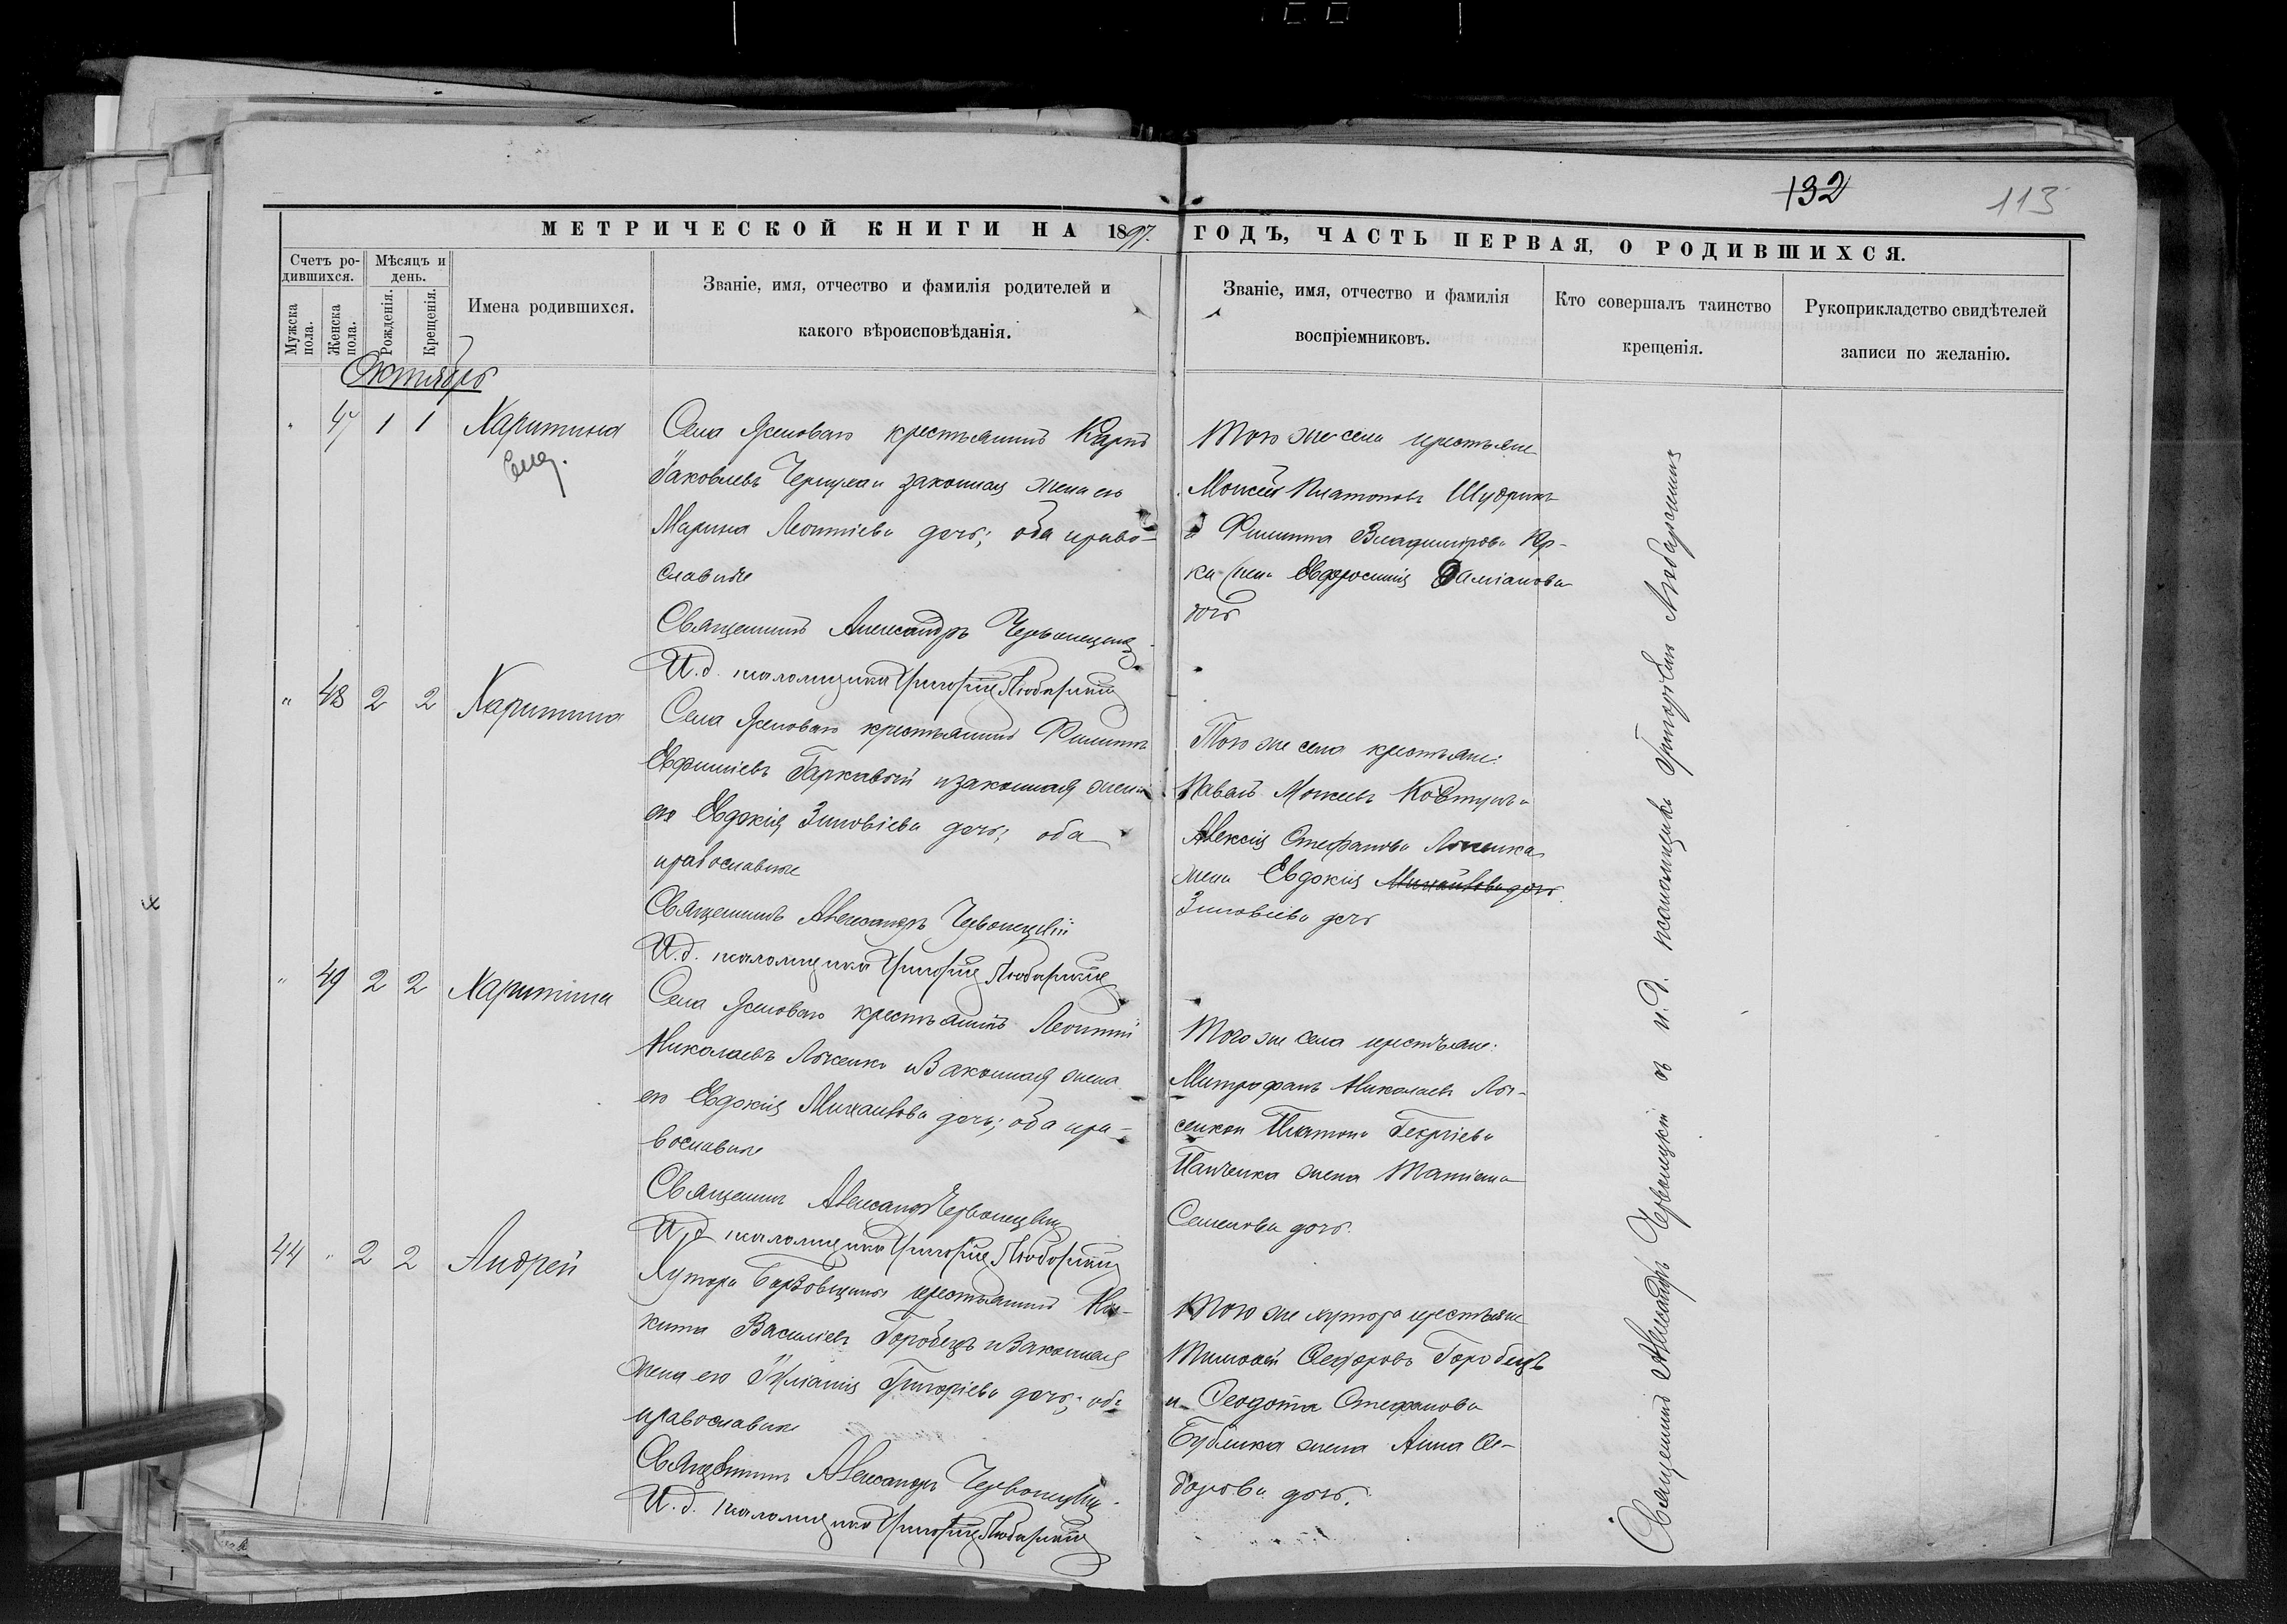 132
113
МЕТРИЧЕСКОЙ КНИГИ НА 1897. ГОДЪ, ЧАСТЬ ПЕРВАЯ, О РОДИВШИХСЯ.
Счетъ ро-
дившихся.
Мужска
пола.
Женска
пола.
Мѣсяцъ и
день.
Рожденія.
Крещенія.
Имена родившихся.
Званіе, имя, отчество и фамилія родителей и
какого вѣроисповѣданія.
Званіе, имя, отчество и фамилія
воспріемниковъ.
Кто совершалъ таинство
крещенія.
Рукоприкладство свидѣтелей
записи по желанію.
Октябрь
" 47 1 1 Харитина
Села Ясеноваго крестьянинъ Карпъ
Яковлевъ законная жена его
Марина Леонтіева дочь; оба право-
славные
Священникъ Александръ Червонецкій
И.д. псаломщика Григорій Любарскій
Того же села крестьяне
Моисей Платоновъ
и Филиппа Владимірова
жена Евфросинія Даміанова
дочь
" 48 2 2 Харитина
Села Ясеноваго крестьянинъ Филиппъ
Евфиміевъ Гаркавый и законная жена
его Евдокія Зиновіева дочь; оба
православные
Священникъ Александръ Червонецкій
И.д. псаломщика Григорій Любарскій
Того же села крестьяне:
Павелъ Моисеевъ Ковтунъ и
Алексія Стефанова
жена Евдокія Михаилова дочь
Зиновіева дочь
" 49 2 2 Харитина
Села Ясеноваго крестьянинъ Леонтій
Николаевъ и законная жена
его Евдокія Михаилова дочь; оба пра-
вославные
Священникъ Александръ Червонецкій
И.д. псаломщика Григорій Любарскій
Того же села крестьяне:
Митрофанъ Николаевъ
Платона Георгіева
Панченка жена Татіана
Семенова дочь.
44 " 2 2 Андрей
Хутора крестьянинъ Ни-
кита Василіевъ Горобецъ и законная
жена его Іуліанія Григоріева дочь; оба
православные
Священникъ Александръ Червонецкій
И.д. псаломщика Григорій Любарскій
Того же хутора крестьяне
Тимофей Ѳеодоровъ Горобецъ
и Ѳеодота Стефанова
Бублика жена Анна Ѳе-
дорова дочь.
Священникъ Александръ Червонецкій съ и.д. псаломщика Григоріемъ Любарскимъ